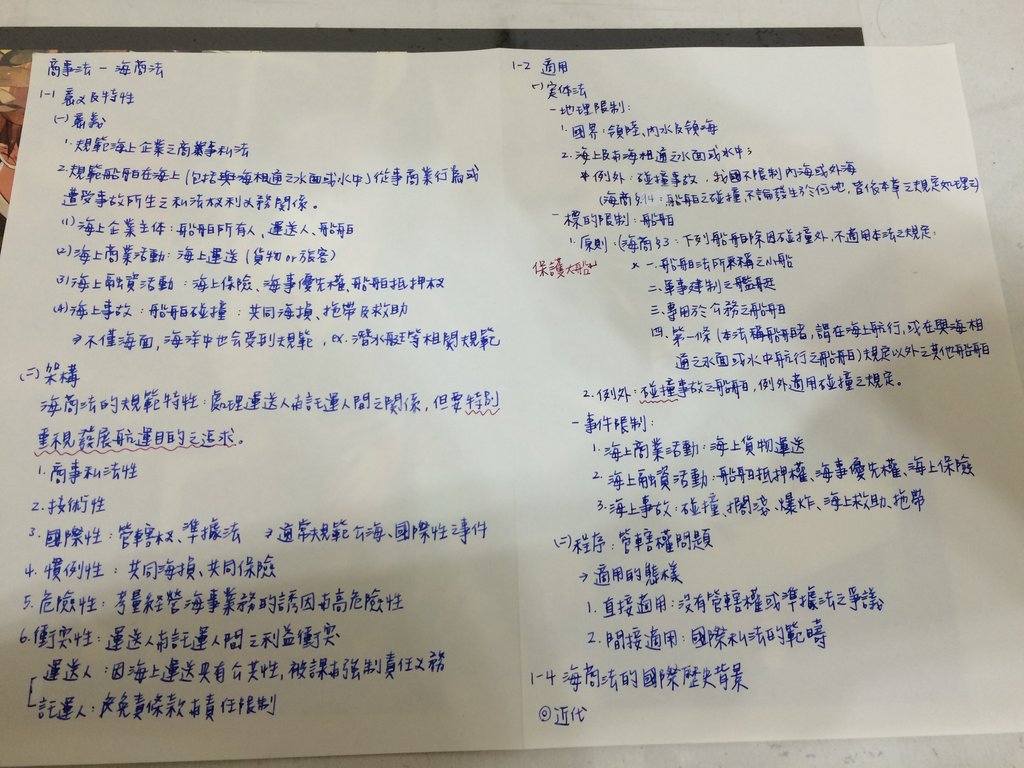 商事法 - 海商法
1-1 意义及特性
(一) 意義
1. 規範海上企業之商業事私法
2. 規範船舶在海上 (包括與海相通之水面或水中) 從事商業行為或
遭受事故所生之私法权利义務關係。
(1) 海上企業主体：船舶所有人、運送人、船舶
(2) 海上商業活動：海上運送 (貨物 or 旅客)
(3) 海上融資活動：海上保險、海事優先權、船舶抵押权
(4) 海上事故：船舶碰撞、共同海損、拖帶及救助
→ 不僅海面，海洋中也会受到規範，ex. 潛水艇等相関規範
(二) 架構
海商法的規範特性：處理運送人与託運人間之關係，但要特別
重視發展航運目的之追求。
1. 商事私法性
2. 技術性
3. 國際性：管轄权、準據法 → 通常規範公海、國際性之事件
4. 慣例性：共同海損、共同保險
5. 危險性：考量経營海事業務的誘因与高危險性
6. 衝突性：運送人与託運人間之利益衝突
運送人：因海上運送具有公共性，被課与強制責任义務
託運人：免責條款与責任限制
1-2 適用
(一) 実体法
- 地理限制：
1. 國界：領陸、內水及領海
2. 海上及与海相通之水面或水中；
* 例外：碰撞事故，我國不限制內海或外海
(海商§134：船舶之碰撞，不論發生於何地，皆依本章之規定處理之)
- 標的限制：船舶
1. 原則：(海商§3：下列船舶除因碰撞外，不適用本法之規定：
保護大船
* 一. 船舶法所稱之小船
二. 軍事建制之艦艇
三. 專用於公務之船舶
四. 第一條 (本法稱船舶者，謂在海上航行，或在與海相
通之水面或水中航行之船舶) 規定以外之其他船舶
2. 例外：碰撞事故之船舶，例外適用碰撞之規定。
- 事件限制：
1. 海上商業活動：海上貨物運送
2. 海上融資活動：船舶抵押權、海事優先權、海上保險
3. 海上事故：碰撞、擱淺、爆炸、海上救助、拖帶
(二) 程序：管轄權問題
→ 適用的態樣
1. 直接適用：沒有管轄權或準據法之爭議
2. 間接適用：國際私法的範疇
1-4 海商法的國際歷史背景
◎ 近代